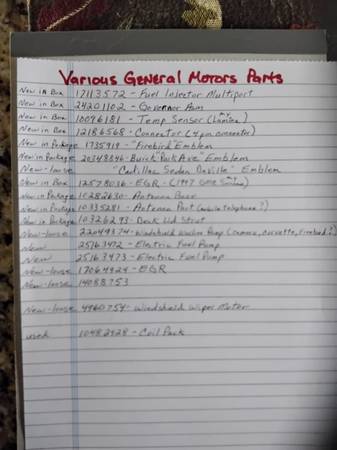 Various General Motors Parts
New in Box 17113572 - Fuel Injector Multiport
New in Box 24201102 - Governor Asm
New in Box 10096181 - Temp Sensor (Lumina?)
New in Box 12186568 - Connector (4 pin connector)
New in Package 1735919 - "Firebird" Emblem
New in Package 20348046 - Buick "Park Ave" Emblem
New-loose "Cadillac Sedan DeVille" Emblem
New in Box 12578036 - EGR - (1997 GMC)
New in Package 10282630 - Antenna Base
New in Package 10335281 - Antenna Part (mobile telephone?)
New in Package 10326293 - Deck Lid Strut
New-loose 22049374 - Windshield Washer Pump (Camaro, Corvette, Firebird?)
New 25163472 - Electric Fuel Pump
New 25163473 - Electric Fuel Pump
New-loose 17064424 - EGR
New-loose 14088753
New-loose 4960754 - Windshield Wiper Motor
used 10482928 - Coil Pack